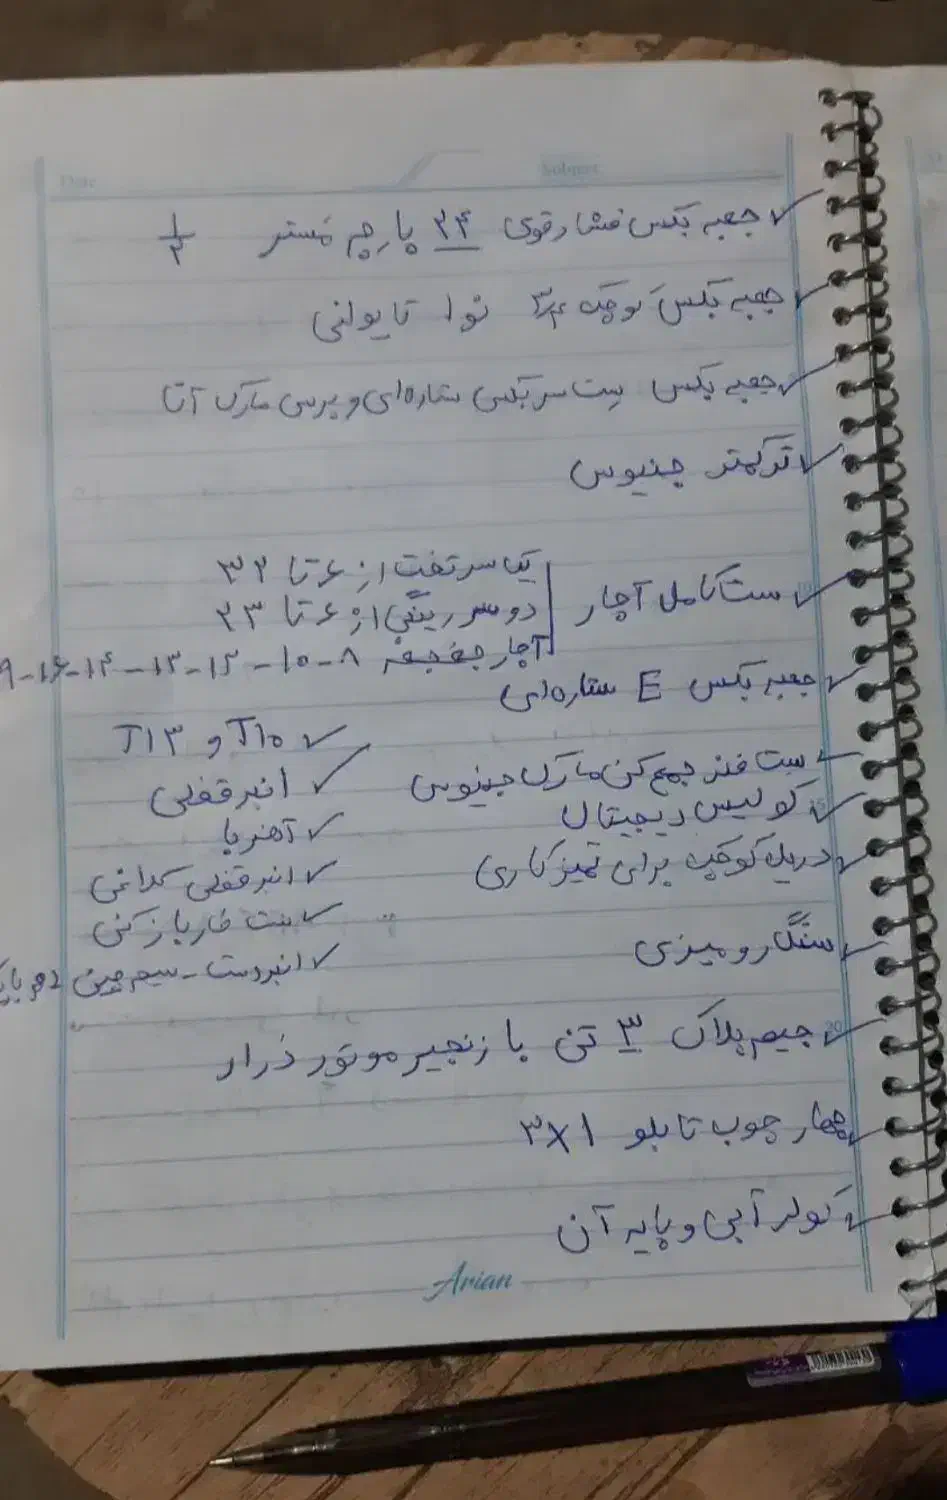 Date
Subject
جعبه بکس فشار قوی ۲۴ پارچه مستر ۱/۲
جعبه بکس کوچک ۳/۴ نوا تایوانی
جعبه بکس ست سر بکس ستاره‌ای و پرس مارک آتا
ترکمتر جنیوس
ست کامل آچار
یک سر تخت از ۶ تا ۳۲
دو سر رینگی از ۶ تا ۲۳
آچار جغجغه ۸-۱۰-۱۲-۱۳-۱۴-۱۶-۹
جعبه بکس E ستاره‌ای
T10 و T13
ست فنر جمع کن مارک جنیوس
انبر قفلی
کولیس دیجیتال
آهنربا
دریل کوچک برای تمیزکاری
انبر قفلی کلاغی
ست خار باز کنی
سنگ رومیزی
انبردست - سیم چین
جیم بلاک ۳ تنی با زنجیر موتور درار
چهار چوب تابلو ۱×۳
کولر آبی و پایه آن
Arian